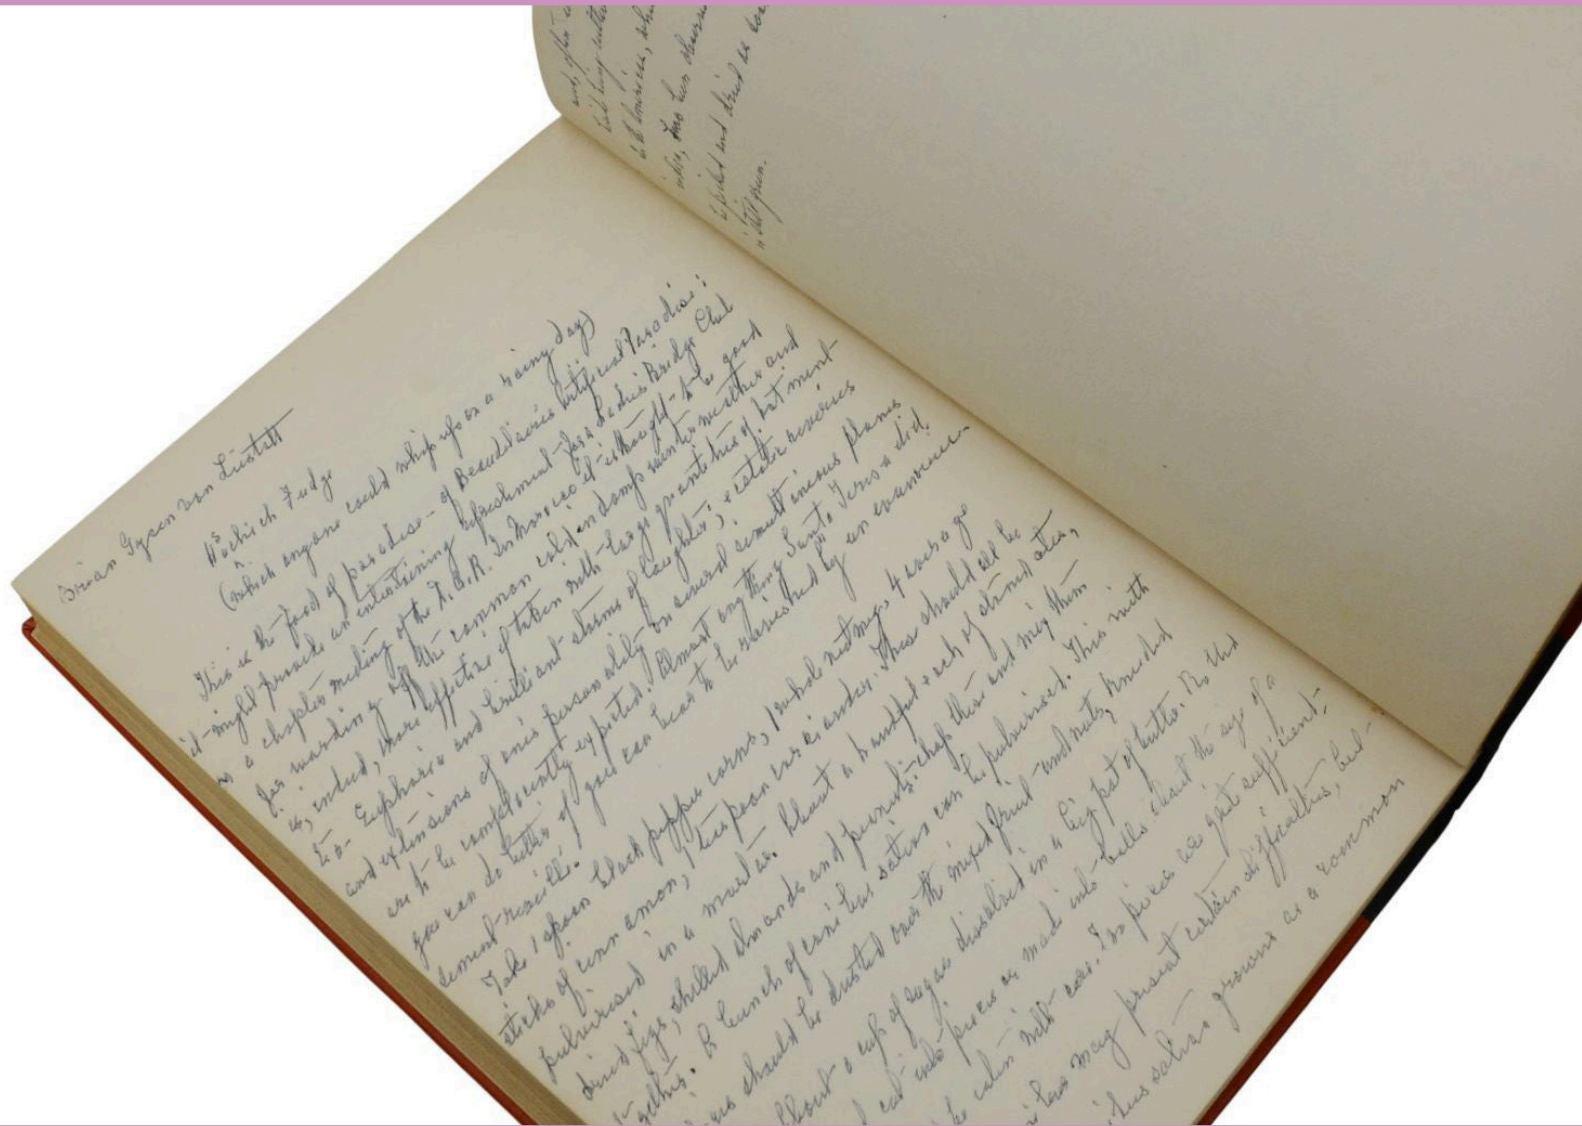 and, often
to the American,
has been observ
picked and dried as
is still green.
Brian Gysen van
Haschich Fudge
(which anyone could whip up on a rainy day)
This is the food of paradise - of Beaudelaire's Artificial Paradise:
it might provide an entertaining refreshment for a Ladies Bridge Club
or a chapter meeting of the D.A.R. In Morocco it is thought to be good
for warding off the common cold in damp winter weather and
is, indeed, more effective if taken with large quantities of hot mint
tea. Euphoria and brilliant storms of laughter; ecstatic reveries
and extensions of one's personality on several simultaneous planes
are to be complacently expected. Almost anything Santa Teresa did,
you can do better if you can bear to be ravished by un evanouis-
sement reveillé.
Take 1 spoon black pepper corns, 1 whole nutmeg, 4 average
sticks of cinnamon, 1 teaspoon coriander. These should all be
pulverised in a mortar. About a handful each of stoned dates,
dried figs, shelled almonds and peanuts: chop these and mix them
together. A bunch of canibus sativa can be pulverised. This with
should be dusted over the mixed fruit and nuts, kneaded
About a cup of sugar dissolved in a big pat of butter.
cut into pieces or made into balls about the size of a
be eaten with care. Two pieces are quite sufficient.
may present certain difficulties, but
sativa grows as a common